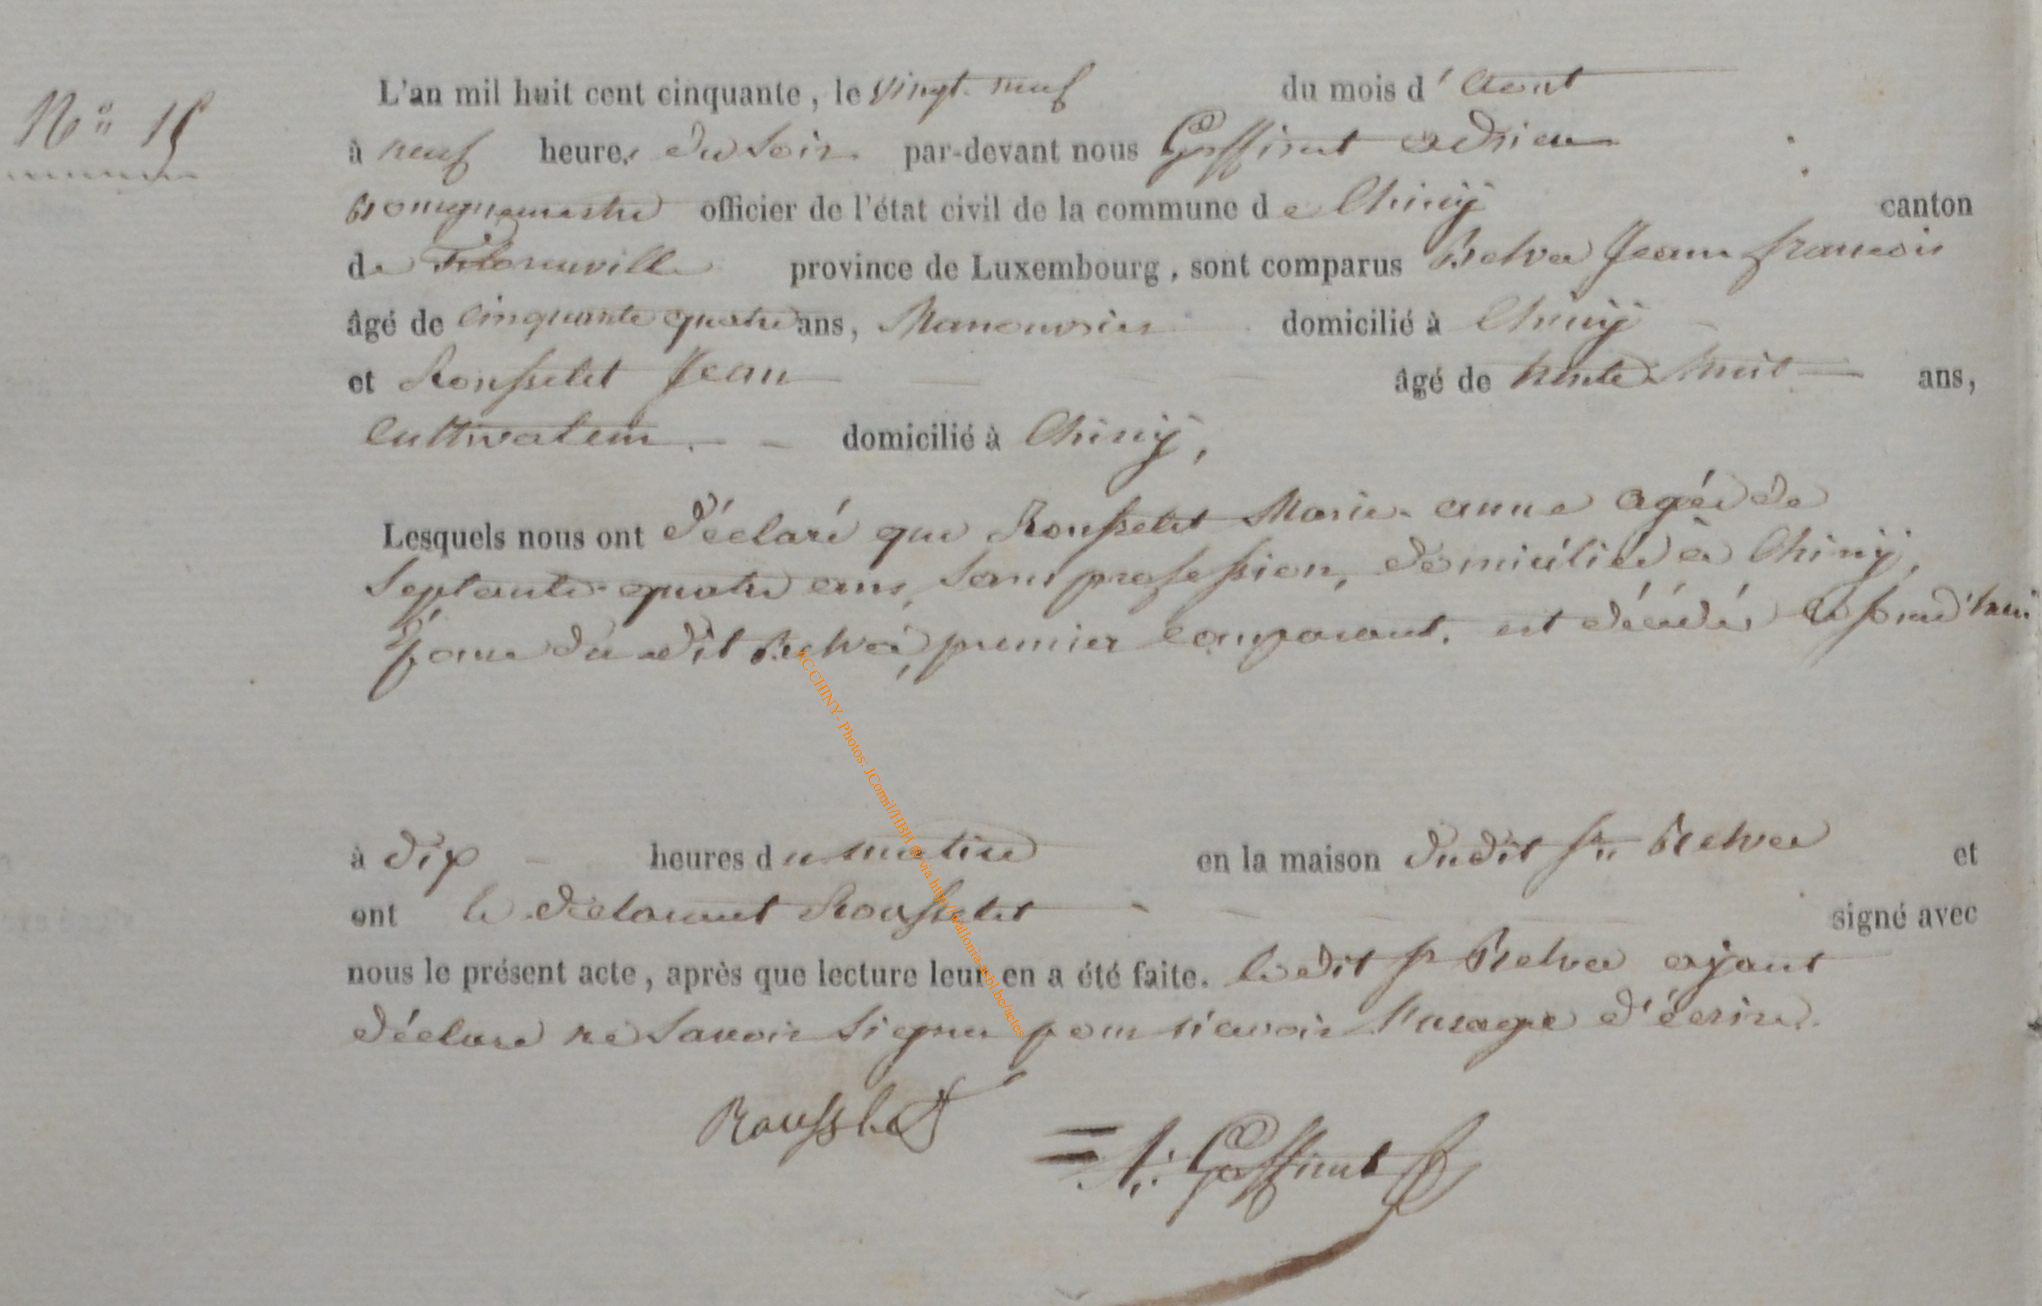 N° 15
L'an mil huit cent cinquante, le vingt neuf du mois d'Aout
à neuf heures du Soir par-devant nous Goffinet adrien
Bourguemestre officier de l'état civil de la commune de Chiny canton
de Florenville province de Luxembourg, sont comparus Belva Jean françois
âgé de Cinquante quatre ans, Manouvrier domicilié à Chiny
et Rousselet Jean âgé de trente huit ans,
Cultivateur domicilié à Chiny,
Lesquels nous ont déclaré que Rousselet Marie anne agée de
Septante quatre ans, Sans profession, domiciliée à Chiny,
du dit Belva, premier comparant, est décédée
à dix heures du matin en la maison dudit Sr Belva et
ont le déclarant Rousselet signé avec
nous le présent acte, après que lecture leur en a été faite. le dit Sr Belva ayant
déclaré ne Savoir Signer pour n'avoir l'usage d'écrire.
Rousslet
A. Goffinet
ACCHINY - Photos: JCornil/HBH @ via http://wallonia-asbl.be/actes